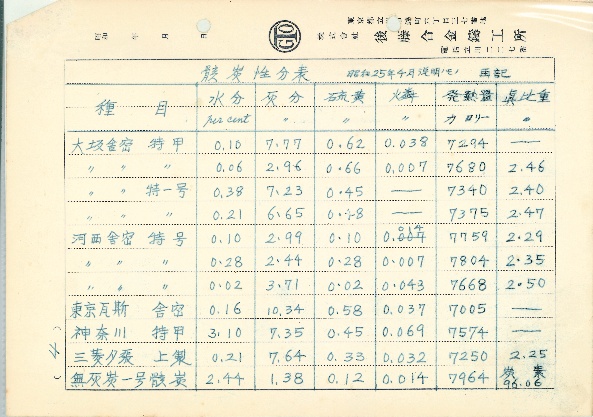 昭和 年 月 日
東京都立川市錦町六丁目三十番地
株式会社 後藤合金鋳工所
電話立川二二七番
骸炭性分表 昭和25年4月説明(モ) 再記
種 目 水分 灰分 硫黄 燐 発熱量 真比重
per cent 〃 〃 〃 カロリー 〃
大阪舎密 特甲 0.10 7.77 0.62 0.038 7294 —
〃 〃 〃 0.06 2.96 0.66 0.007 7680 2.46
〃 〃 特一号 0.38 7.23 0.45 — 7340 2.40
〃 〃 〃 0.21 6.65 — 7375 2.47
河西舎密 特号 0.10 2.99 0.10 014 0.007 7759 2.29
〃 〃 〃 0.28 2.44 0.28 0.007 7804 2.35
〃 〃 〃 0.02 3.71 0.02 0.043 7668 2.50
東京瓦斯 舎密 0.16 10.34 0.58 0.037 7005 —
神奈川 特甲 3.10 7.35 0.45 0.069 7574 —
三菱夕張 上製 0.21 7.64 0.33 0.032 7250 2.25
無灰炭一号骸炭 2.44 1.38 0.12 0.014 7964 炭素 96.06
(4)